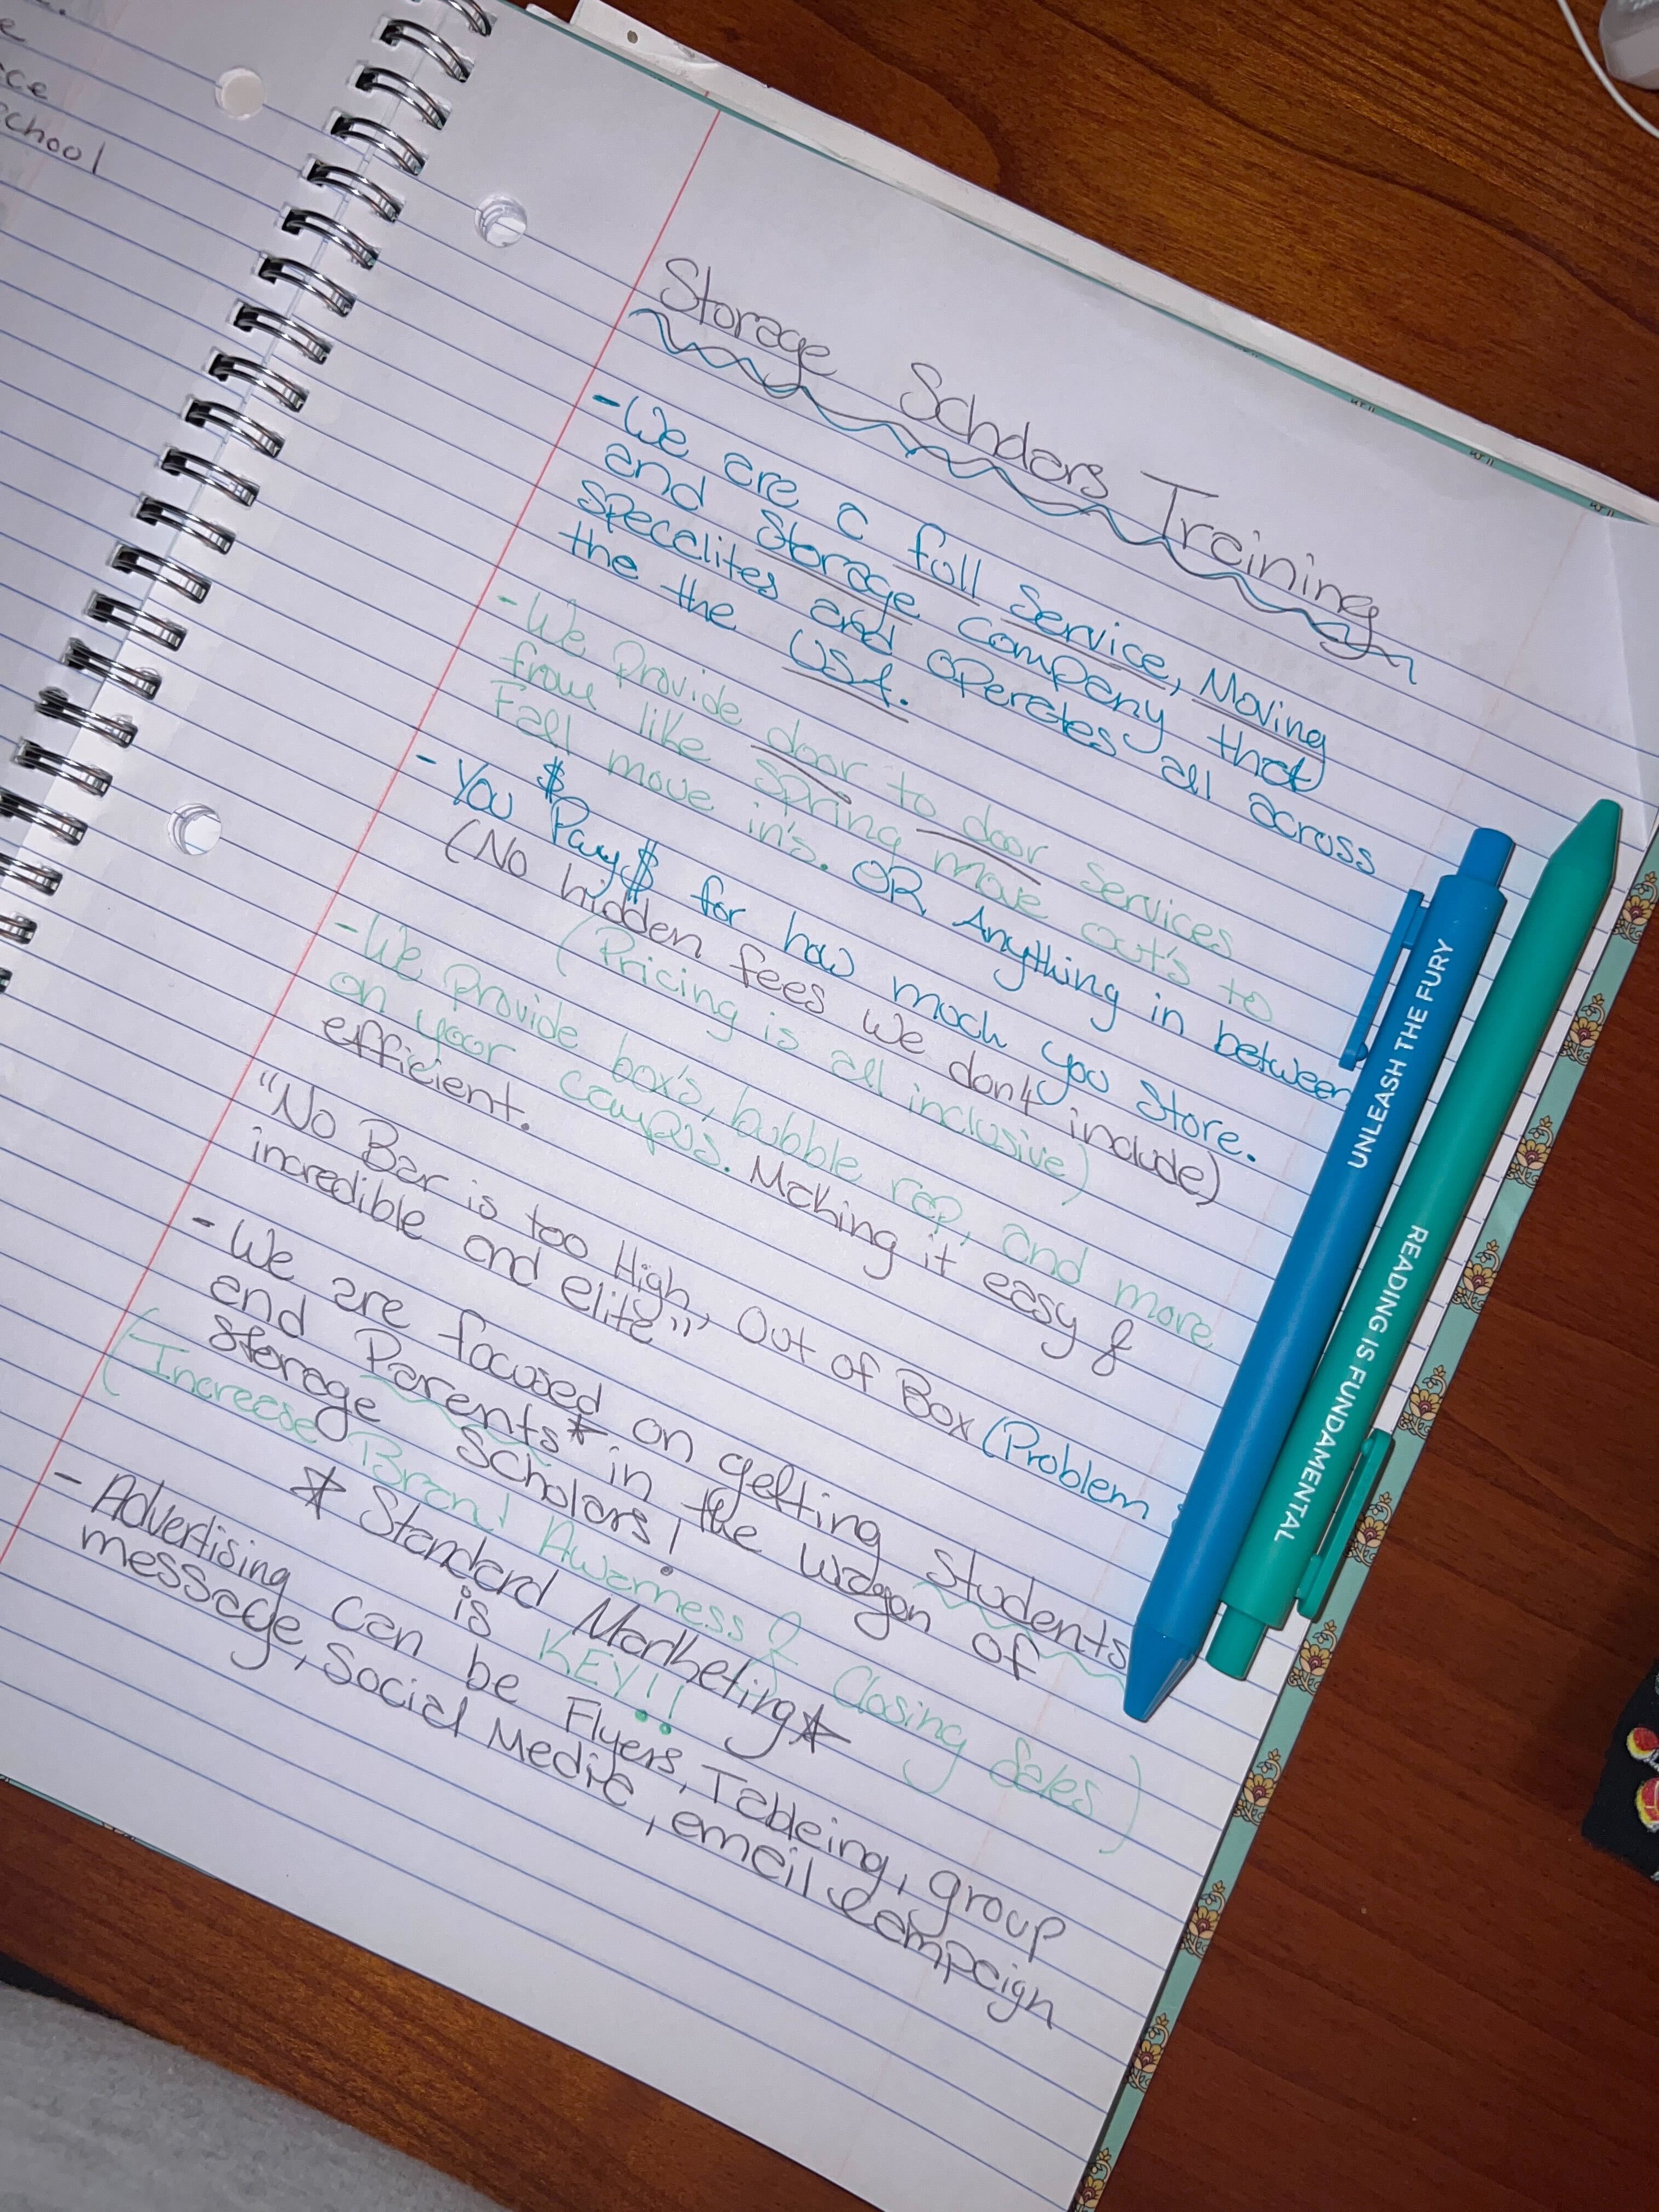 ce
School
Storage Scholars Training
- We are a full service, Moving
and Storage company that
specalites and operates all across
the the USA.
- We Provide door to door services
from like spring move out's to
Fall move in's. OR Anything in between
- You $Pay$ for how much you store.
(No hidden fees we don't include)
(Pricing is all inclusive)
- We provide box's, bubble rap, and more
on your campus. Making it easy &
efficient.
"No Bar is too High, Out of Box (Problem
incredible and elite"
- We are focused on getting students
and Parents* in the wagon of
Storage Scholars!
(Increase Brand Awarness & Closing Sales)
* Standard Marketing *
is KEY!!
- Advertising can be Flyers, Tableing, group
message, Social Media, email campaign
UNLEASH THE FURY
READING IS FUNDAMENTAL